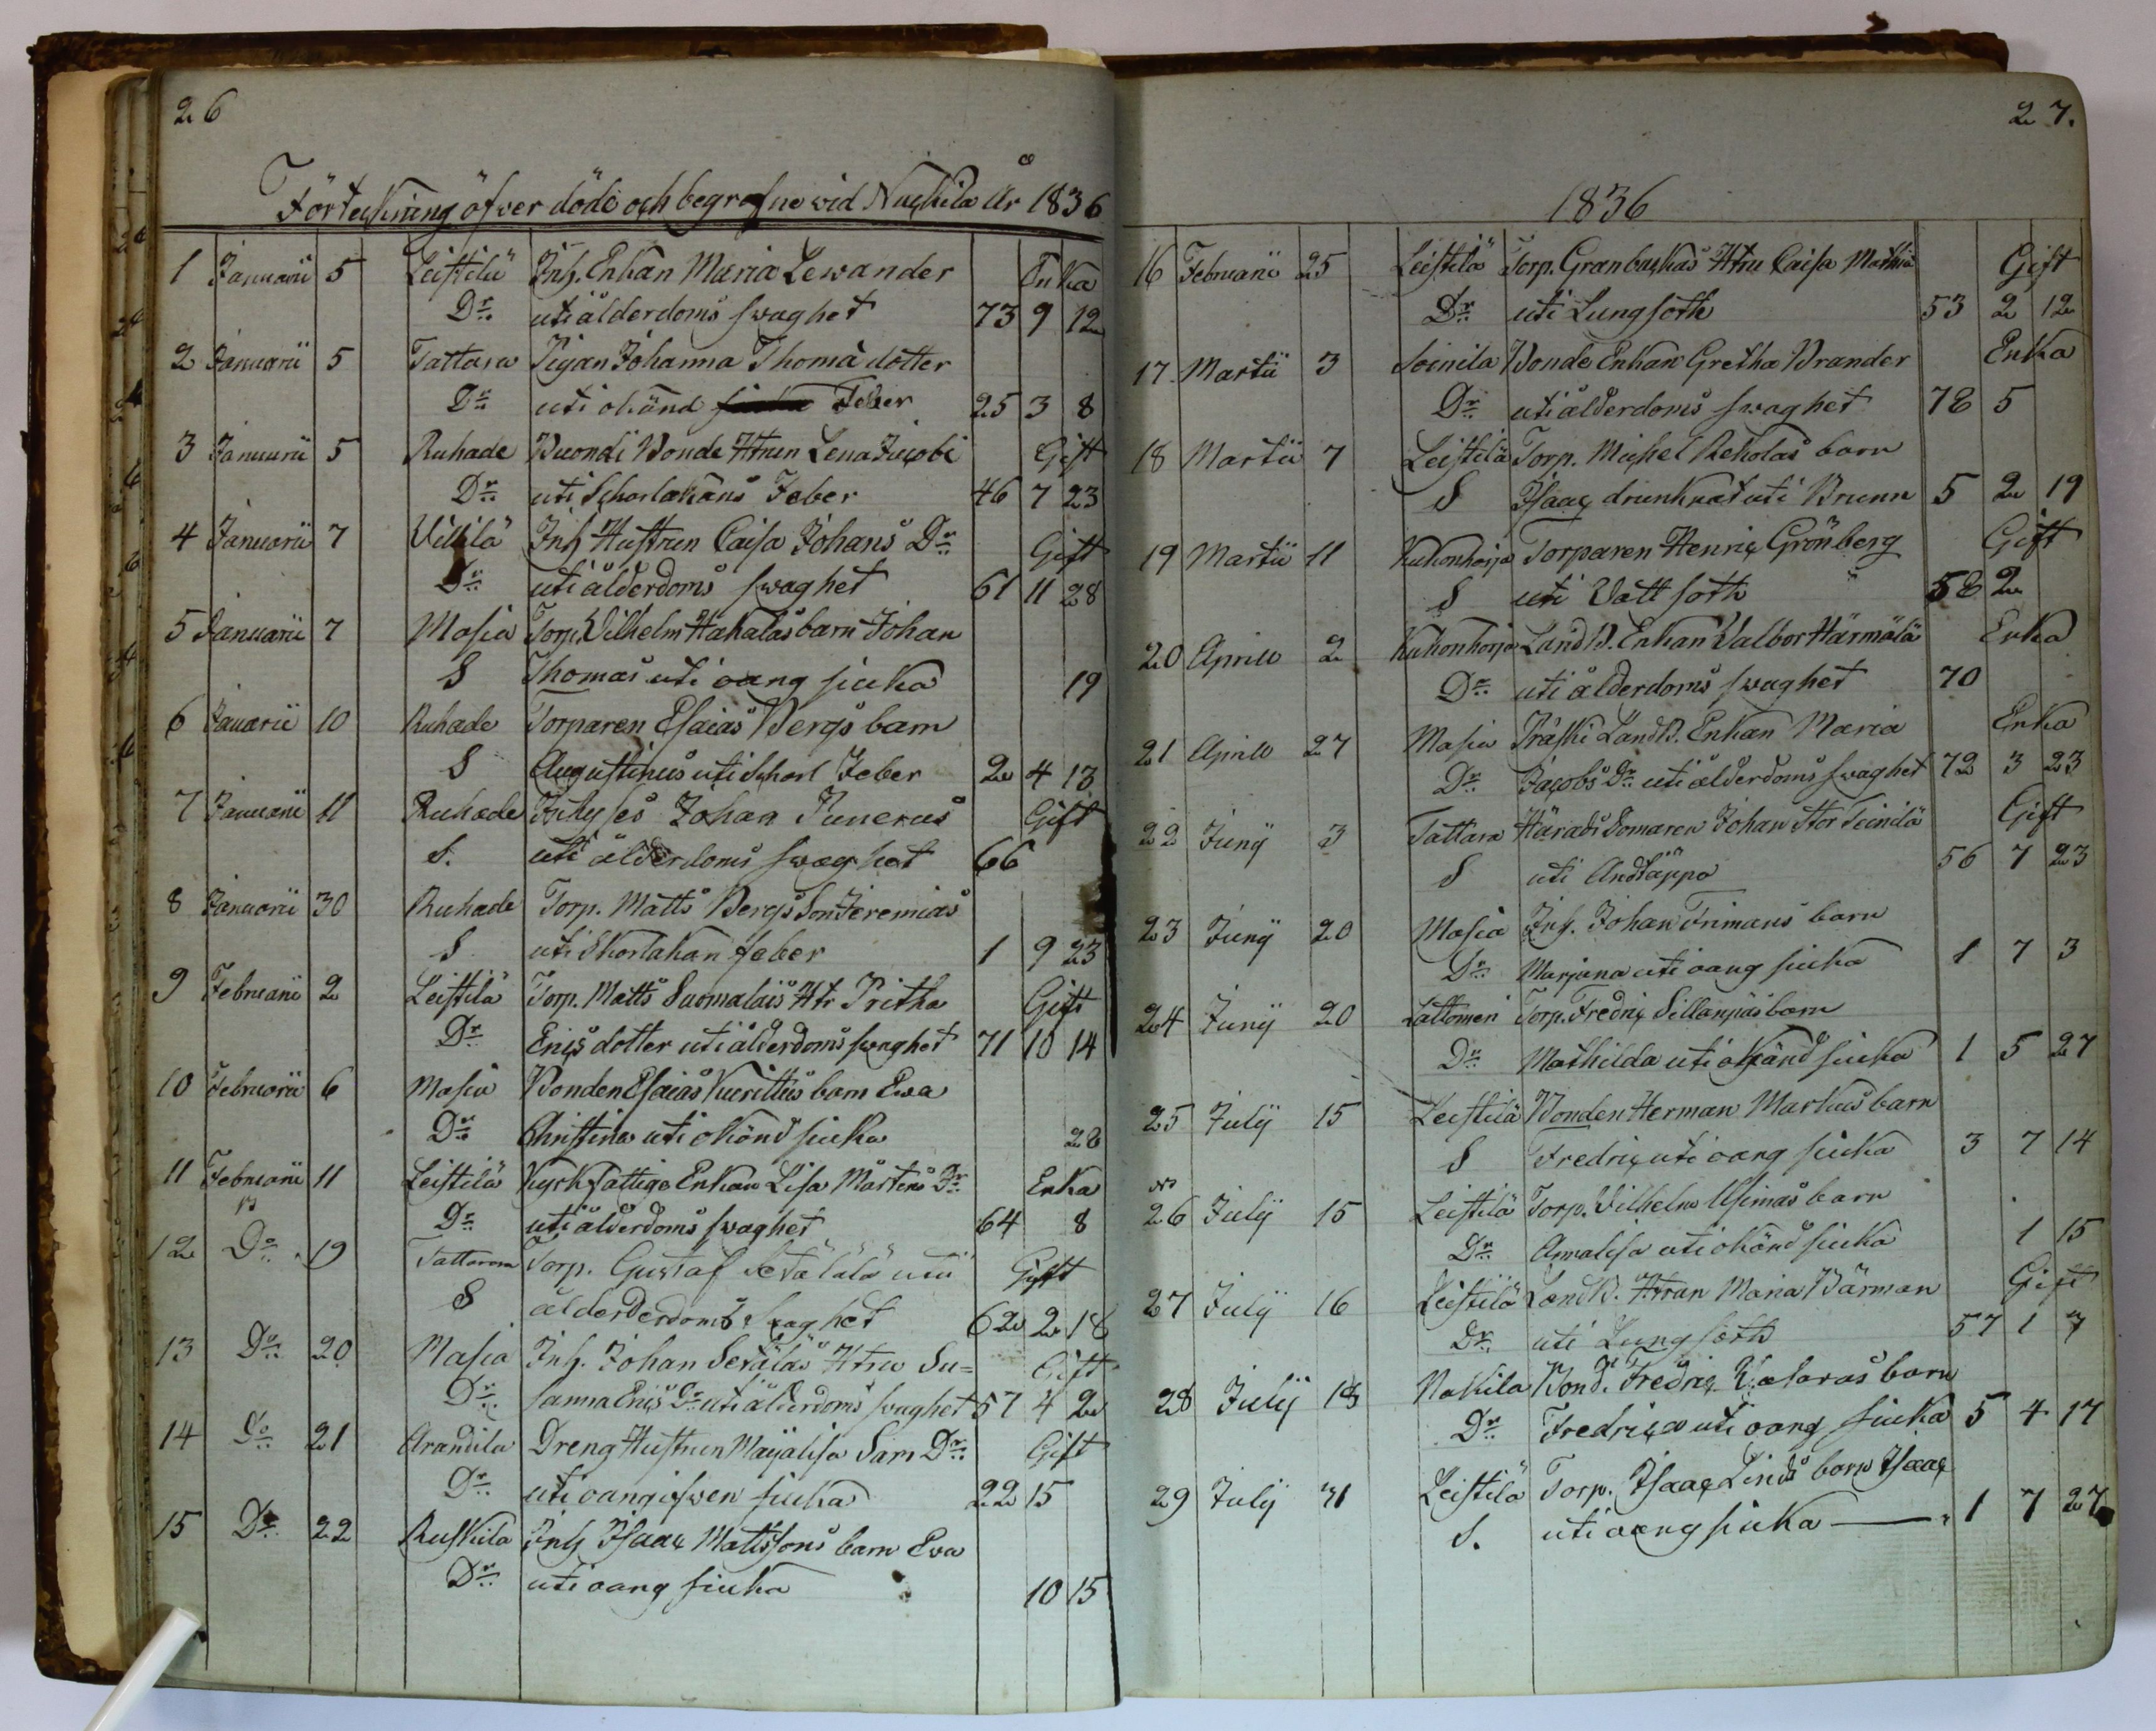 26
Förteckning öfver döde och begrafne wid Nackila År 1836
1 Januarii 5 Leistilä Inh. Enkan Maria Lewander Enka
Dr uti ålderdoms swaghet 73 9 12
2 Januarii 5 Tattara Pigan Johanna Thomä dotter
Dr uti okänd Feber 25 3 8
3 Januarii 5 Ruhade Buondi Bonde Htrun Lena Jacobi Gift
Dr uti Scharlakans Feber 46 7 23
4 Januarii 7 Villilä Inh Hustrun Caisa Johans Dr Gift
Dr uti ålderdoms swaghet 61 11 28
5 Januarii 7 Masia Torp. Wilhelm Hakalas barn Johan
S Thomas uti oang siuka 19
6 Januarii 10 Ruhade Torparen Esaias Bergs barn
S Augustinus uti Scharl Feber 2 4 13
7 Januarii 11 Ruhade Inhyses Johan Junerus Gift
S. uti ålderdoms swaghet 66
8 Januarii 30 Ruhade Torp. Matts Bergs Son Jeremias
S uti Skarlakan feber 1 9 23
9 Februarii 2 Leistilä Torp. Matts Suomalais Htr Pritha Gift
Dr Erics dotter uti ålderdoms swaghet 71 10 14
10 Februarii 6 Masia Bonden Esaias Kurittus barn Ewa
Dr Christina uti okänd siuka 28
11 Februarii 11 Leistilä Kyrkfattiga Enkan Lisa Mårtens Dr Enka
Dr uti ålderdoms swaghet 64 8
12 Do 19 Tattara Torp. Gustaf Setälälä uti Gift
S ålderderdoms swaghet 62 2 18
13 Do 20 Masia Inh. Johan Setäläs Htru Su= Gift
Dr sanna Erics Dr uti ålderdoms swaghet 57 4 2
14 Do 21 Arandila Dreng Hustrun Majalisa Sars Dr Gift
Dr uti oangifwen siuka 22 15
15 Do 22 Ruskila Inh Isaac Mattssons barn Eva
Dr uti oang siuka 10 15
27.
1836
16 Februarii 25 Leistilä Torp. Granbackas Htru Caisa Mathia Gift
Dr uti Lungsoth 53 2 12
17 Martii 3 Soinila Bonde Enkan Gretha Brander Enka
Dr uti ålderdoms swaghet 78 5
18 Martii 7 Leistilä Torp. Michel Reholas barn
S Isaac drunknat uti Brunn 5 2 19
19 Martii 11 Kukonharja Torparen Henric Grönberg Gift
S uti Vattsoth 58 2
20 Aprill 2 Kukonharja Land B. Enkan Valbor Härmälä Enka
Dr uti ålderdoms swaghet 70
21 Aprill 27 Masia Präski Land B. Enkan Maria Enka
Dr Jacobs Dr uti ålderdoms swaghet 72 3 23
22 Junij 3 Tattara Härads Domaren Johan Stor Teinilä Gift
S uti Andtäppa 56 7 23
23 Junij 20 Masia Inh. Johan Frimans barn
Dr Marjana uti oang siuka 1 7 3
24 Junij 20 Lattomeri Torp. Fredric Sillanpäs barn
Dr Mathilda uti okänd siuka 1 5 27
25 Julij 15 Leistilä Bonden Herman Markus barn
S Fredric uti oang siuka 3 7 14
26 Julij 15 Leistilä Torp. Wilhelm barn
Dr Annalisa uti okänd siuka 1 15
27 Julij 16 Leistilä Land B. Htrun Maria Bärman Gift
Dr uti Lungsoth 57 1 7
28 Julij 18 Nakila Bond. Fredric barn
Dr Fredrica uti oang siuka 5 4 17
29 Julij 31 Leistilä Torp. Isaac Linds barn Isaac
S. uti oang siuka 1 7 27